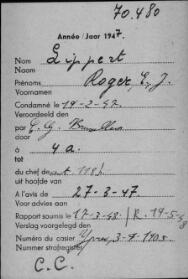 70.480
Année / Jaar 1947.
Nom Lippert
Naam
Prénoms Roger, E. J.
Voornamen
Condamné le 19-2-47
Veroordeeld den
par C. G. Bruxelles
door
à 4 a.
tot
du chef de art. 118
uit hoofde van
A l'avis de 27-3-47
Voor advies aan
Rapport soumis le 17-3-48 / R. 19-5-
Verslag voorgelegd den
Numéro du casier Ypres, 3-9-190
Nummer strafregister
C.C.